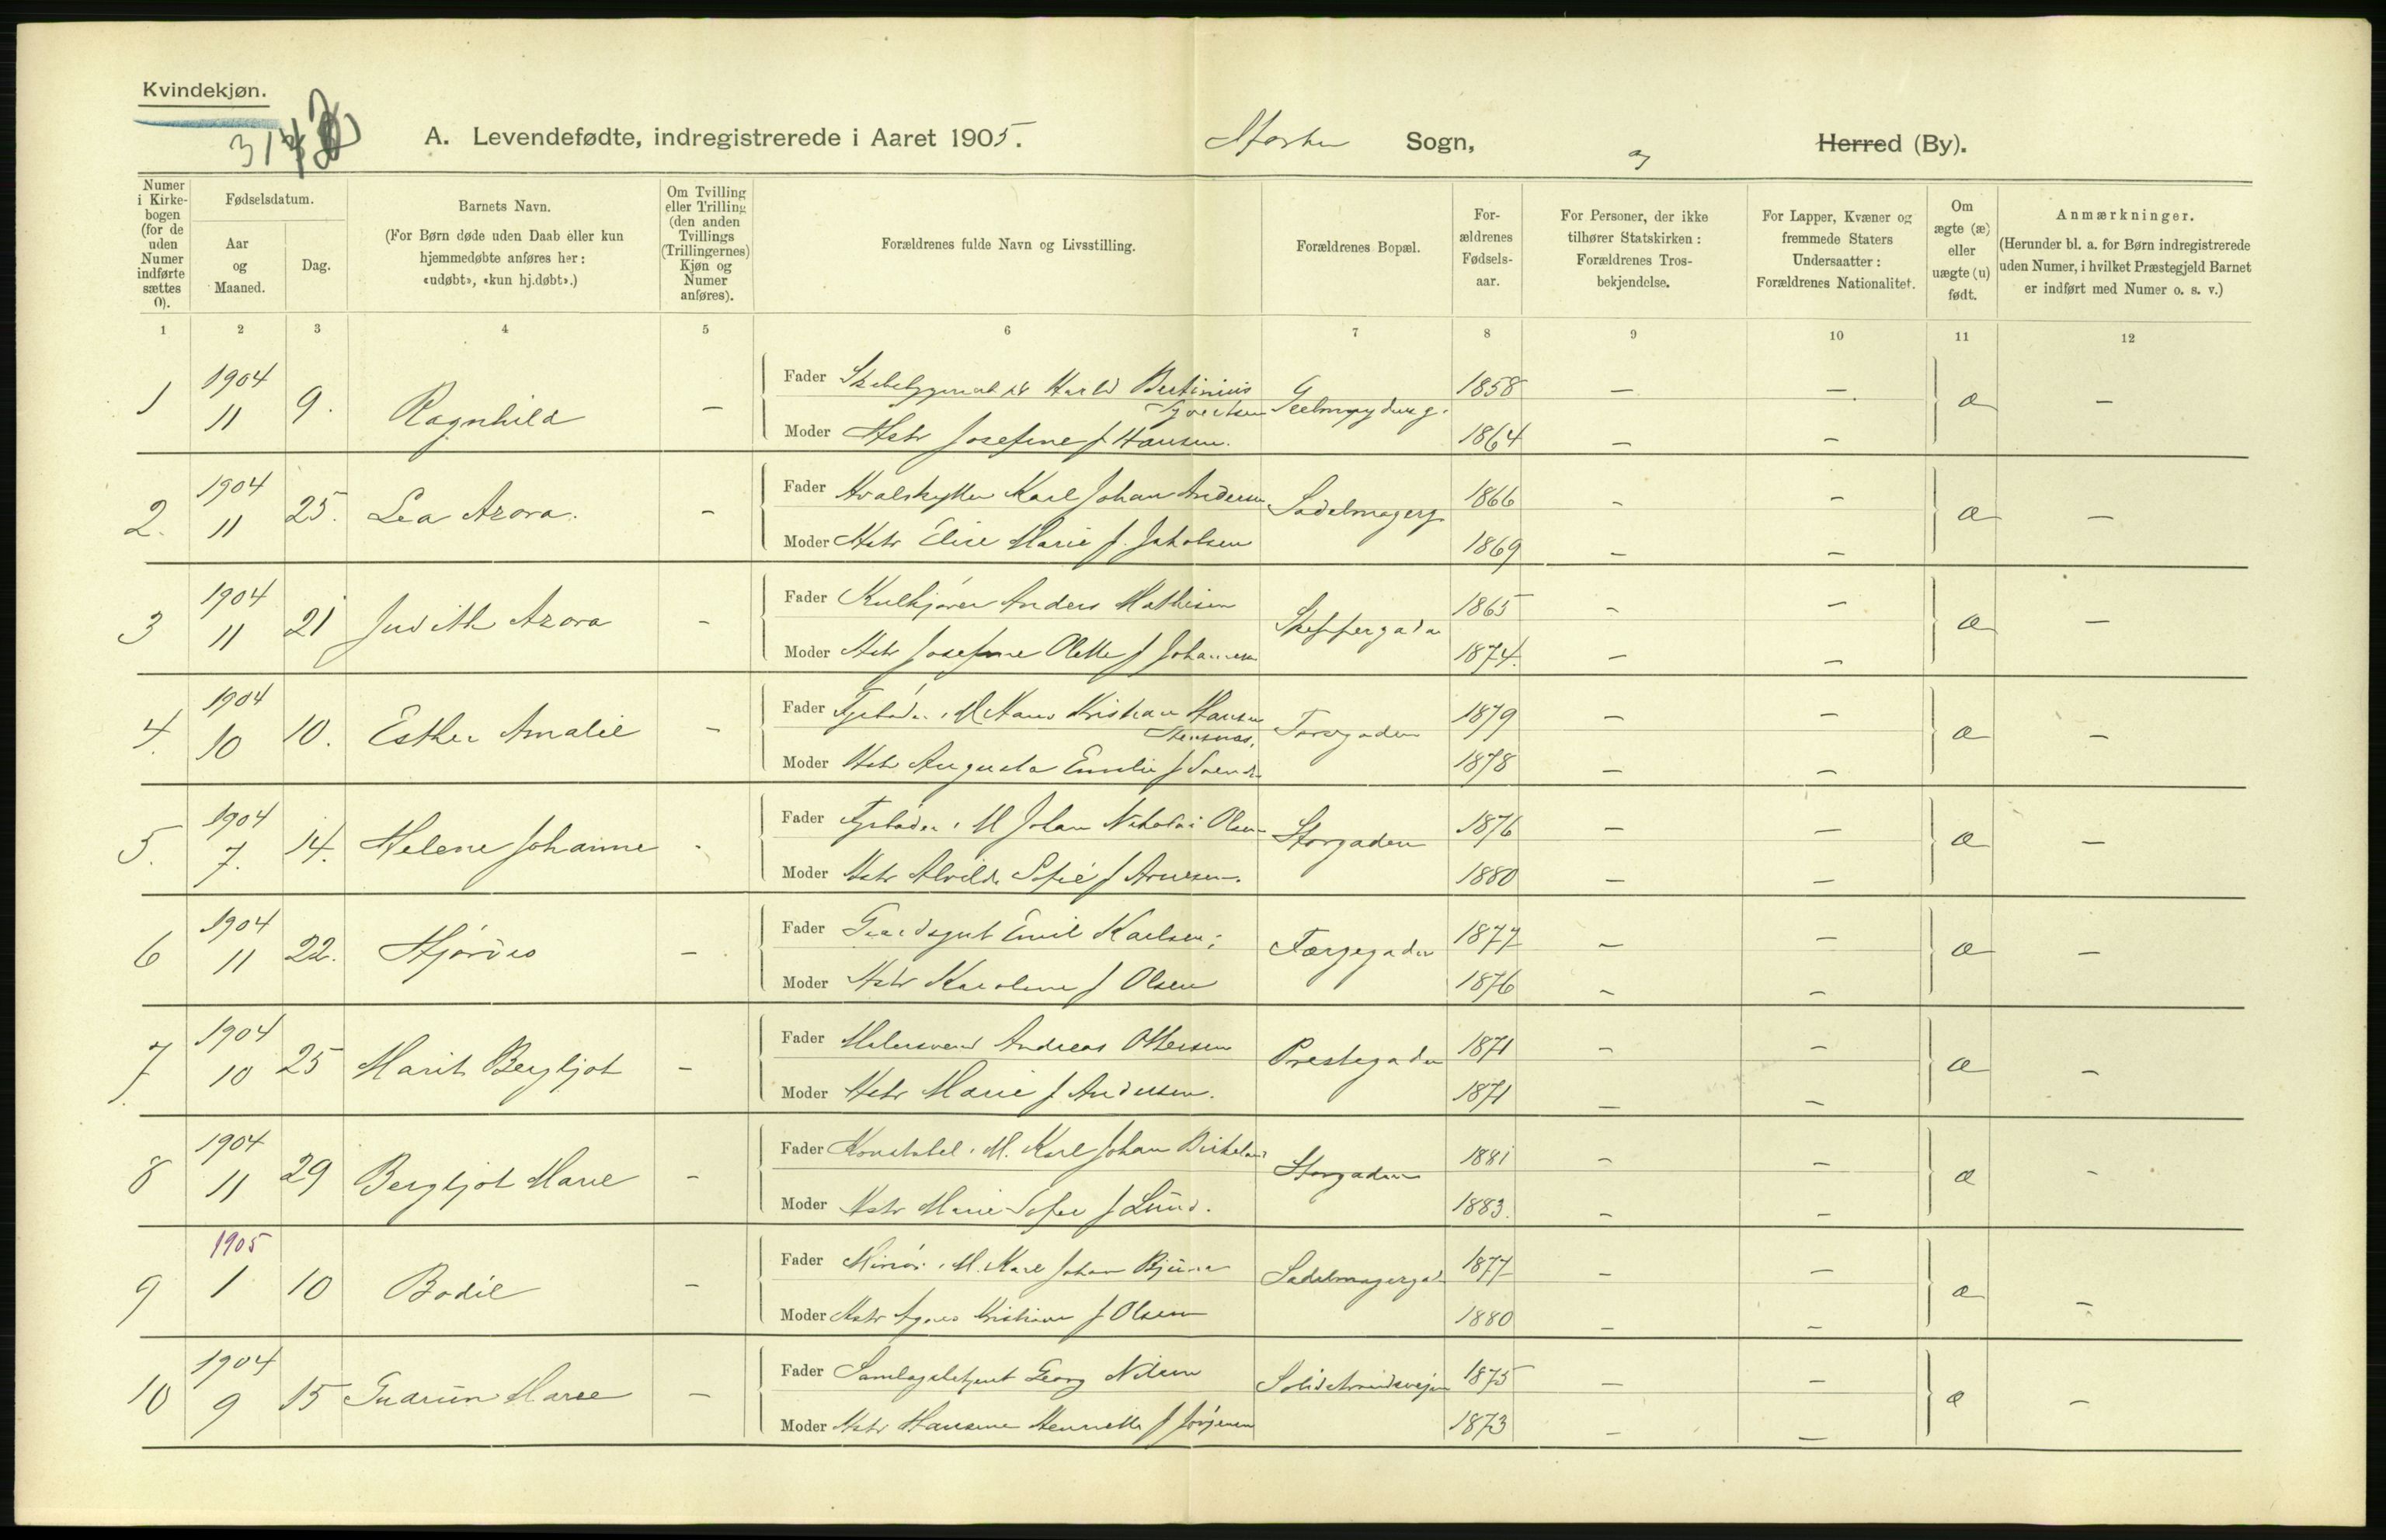 Kvindekjøn.
A. Levendefødte, indregistrerede i Aaret 1905.
Sogn,
Herred (By).
Numer i Kirkebogen (for de uden Numer indførte sættes 0).
Fødselsdatum.
Aar og Maaned.
Dag.
Barnets Navn.
(For Børn døde uden Daab eller kun hjemmedøbte anføres her: «udøbt», «kun hj.døbt».)
Om Tvilling eller Trilling (den anden Tvillings (Trillingernes) Kjøn og Numer anføres).
Forældrenes fulde Navn og Livsstilling.
Forældrenes Bopæl.
Forældrenes Fødselsaar.
For Personer, der ikke tilhører Statskirken: Forældrenes Trosbekjendelse.
For Lapper, Kvæner og fremmede Staters Undersaatter: Forældrenes Nationalitet.
Om ægte (æ) eller uægte (u) født.
Anmærkninger.
(Herunder bl. a. for Børn indregistrerede uden Numer, i hvilket Præstegjeld Barnet er indført med Numer o. s. v.)
1 2 3 4 5 6 7 8 9 10 11 12
1 1904 11 9. Ragnhild –
Fader 1858 – –
Moder Hstr Josefine f Hansen. 1864 – –
æ –
2. 1904 11 25. Lea Azora. –
Fader Hvalskytter Karl Johan Andersen Sadelmagerg. 1866 – –
Moder Hstr Elise Marie f. Jakobsen 1869 – –
æ –
3 1904 11 21 Judith Azora –
Fader Kulkjører Anders Mathisen Skippergada 1865 – –
Moder Hstr Josefine Olette f Johannesen 1874. – –
æ –
4. 1904 10 10. Esther Amalie –
Fader Hans Kristian Hansen 1879 – –
Moder Hstr Augusta Emilie f 1878 – –
æ –
5. 1904 7. 14. Helene Johanne -
Fader Johan Nikolai Olsen Storgaden 1876 – –
Moder Hstr Alvilde Sofie f Arnesen. 1880 – –
æ –
6 1904 11 22. Hjørdes –
Fader Gaardsgut Emil Karlsen; Færgegaden 1877 – –
Moder Hstr Karoline f Olsen 1876 – –
æ –
7 1904 10 25 Marit Bergljot –
Fader Malersvend Andreas Ottersen Prestegaden 1871 – –
Moder Hstr Marie f Andersen. 1871 – –
æ –
8 1904 11 29 Bergljot Marie –
Fader Konstabel i M. Karl Johan Birkeland Storgaden 1881 – –
Moder Hstr Marie Sofie f Lund. 1883. – –
æ –
9 1905 1 10 Bodil –
Fader Minør i M. Karl Johan Sadelmagergad 1877 – –
Moder Hstr Agnes Kristiane f Olsen 1880 – –
æ –
10 1904 9 15 Gudrun Marie –
Fader Samlagsbetjent Georg Nilsen 1875 – –
Moder Hstr Hansine Henriette f Jørgensen 1873 – –
æ –